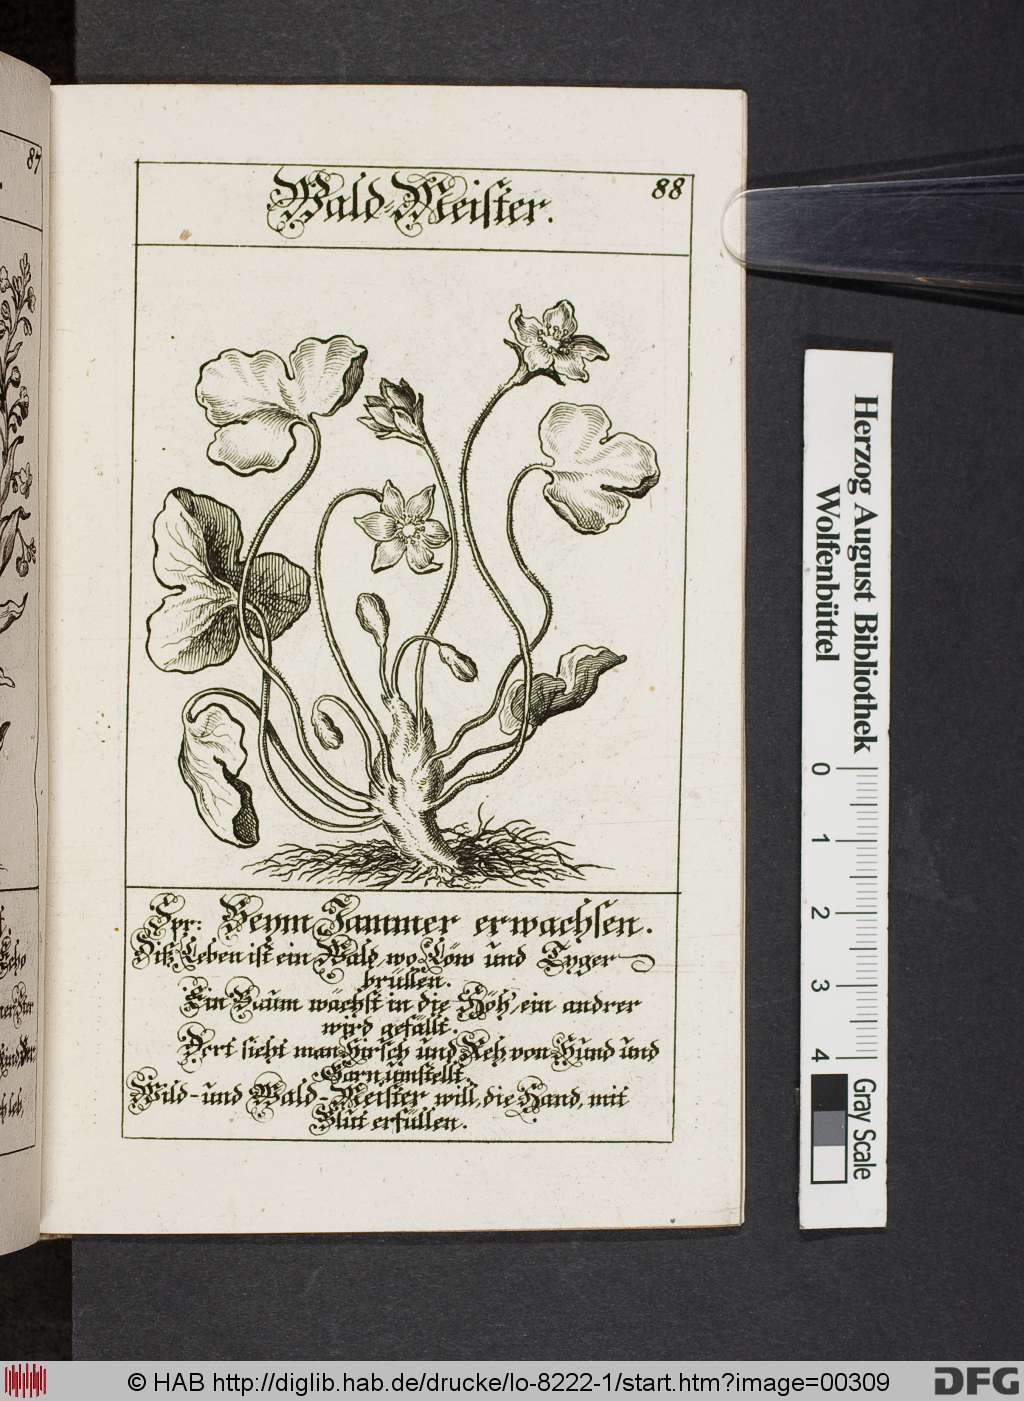 87
88
Wald-Meister.
Spr: Beym Jammer erwachsen.
Diß Leben ist ein Wald, wo Löw und Tyger
brüllen.
Ein Baum wächst in die Höh, ein andrer
wird gefällt.
Dort sieht man Hirsch und Reh, von Hund und
Garn, umstellt.
Wild- und Wald-Meister will, die Hand, mit
Blut, erfüllen.
Herzog August Bibliothek
Wolfenbüttel
0 1 2 3 4
Gray Scale
© HAB http://diglib.hab.de/drucke/lo-8222-1/start.htm?image=00309
DFG